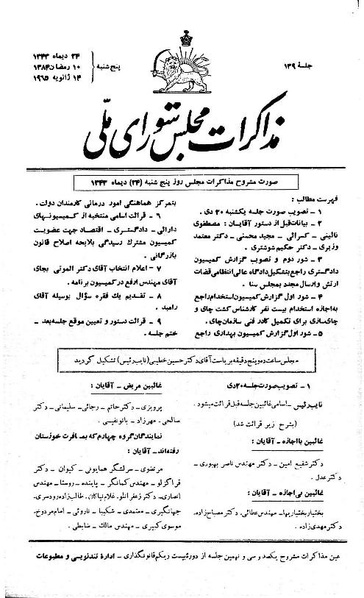 جلسهٔ ۱۳۹
پنج شنبه
۲۴ دیماه ۱۳۴۳
۱۰ رمضان ۱۳۸۴
۱۴ ژانویه ۱۹۶۵
مذاکرات مجلس شورای ملی
صورت مشروح مذاکرات مجلس روز پنج شنبه (۲۴) دیماه ۱۳۴۳
فهرست مطالب :
۱ – تصویب صورت جلسه یکشنبه ۲۰ دی .
۲ – بیانات قبل از دستور آقایان : مصطفوی
نائینی – کسرائی – مجید محسنی – معتمد
وزیری – دکتر حکیم شوشتری .
۳ – شور دوم و تصویب گزارش کمیسیون
دادگستری راجع بتشکیل دادگاه عالی انتظامی قضات
ارتش و ارسال مجدد بمجلس سنا .
۴ – شور اول گزارش کمیسیون استخدام راجع
به اجازه استخدام بیست نفر کارشناس کشت چای و
چایسازی برای تکمیل کادر فنی سازمان چای .
۵ – شور اول گزارش کمیسیون بهداری راجع
بتمرکز هماهنگی امور درمانی کارمندان دولت .
۶ – قرائت اسامی منتخبه از کمیسیونهای
دارائی – دادگستری – اقتصاد جهت عضویت
کمیسیون مشترک رسیدگی بلایحه اصلاح قانون
بازرگانی .
۷ – اعلام انتخاب آقای دکتر الموتی بجای
آقای مهندس ارفع در کمیسیون برنامه .
۸ – تقدیم یک فقره سؤال بوسیله آقای
رامبد .
۹ – قرائت دستور و تعیین موقع جلسه بعد –
ختم جلسه .
مجلس ساعت نه و پنج دقیقه بریاست آقای دکتر حسین خطیبی (نایب رئیس) تشکیل گردید
۱ – تصویب صورت جلسه ۲۰ دی
نایب رئیس – اسامی غائبین جلسه قبل قرائت میشود .
(بشرح زیر قرائت شد)
غائبین با اجازه – آقایان :
دکتر شفیع امین – دکتر مهندس ناصر بهبودی –
دکتر عدل .
غائبین بی اجازه – آقایان :
بختیار بختیاریها – مهندس عطائی – دکتر مصباح زاده –
دکتر مهدی زاده .
غائبین مریض – آقایان :
پرویزی – دکتر حاتم – رجائی – سلیمانی – دکتر
صالحی – مهرزاد – بانو نفیسی .
نمایندگان گروه چهارم که بمسافرت خوزستان
رفته اند – آقایان :
مرتضوی – سرلشکر همایونی – کیوان – دکتر
قراگزلو – مهندس کمانگر – پاینده – روستا – مهندس
انصاری – دکتر زعفرانلو – غلام نیاکان – طالب زاده رودسری –
جهانگیری – معتمدی – شکیبا – ناروئی – امام مردوخ –
کبیری – موسوی – مهندس مالک – ضابطی .
عین مذاکرات مشروح یکصد و سی و نهمین جلسه از دوره بیست و یکم قانونگذاری – ادارهٔ تندنویسی و مطبوعات